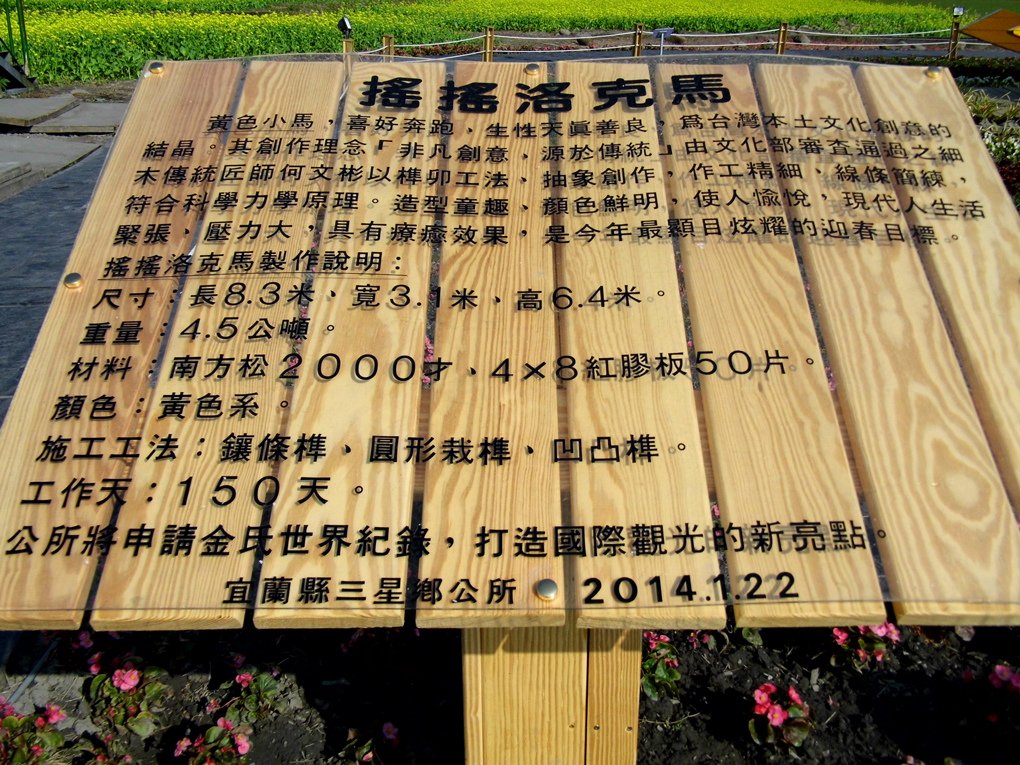 搖搖洛克馬
黃色小馬，喜好奔跑、生性天眞善良，為台灣本土文化創意的
結晶。其創作理念「非凡創意、源於傳統」由文化部審查通過之細
木傳統匠師何文彬以榫卯工法、抽象創作，作工精細、線條簡練，
符合科學力學原理。造型童趣、顏色鮮明，使人愉悅，現代人生活
緊張、壓力大，具有療癒效果，是今年最顯目炫耀的迎春目標。
搖搖洛克馬製作說明：
尺寸：長8.3米、寬3.1米、高6.4米。
重量：4.5公噸。
材料：南方松2000才、4×8紅膠板50片。
顏色：黃色系。
施工工法：鑲條榫、圓形栽榫、凹凸榫。
工作天：150天。
公所將申請金氏世界紀錄，打造國際觀光的新亮點。
宜蘭縣三星鄉公所 2014.1.22